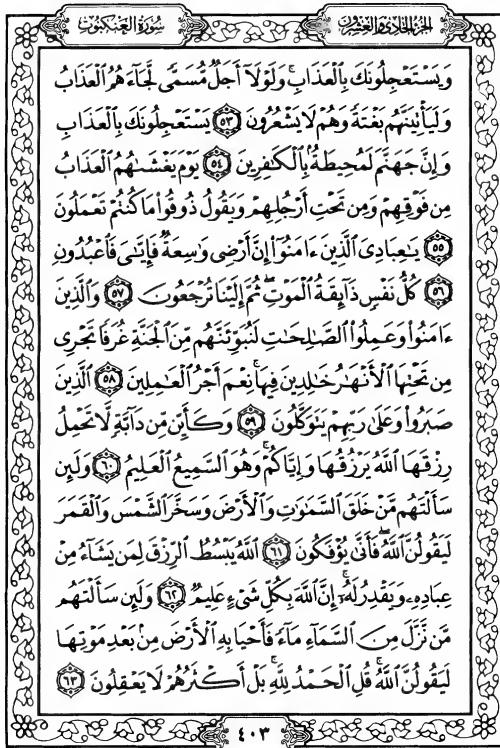 الجزء الحادي والعشرون
سورة العنكبوت
وَيَسْتَعْجِلُونَكَ بِالْعَذَابِ ۚ وَلَوْلَا أَجَلٌ مُّسَمًّى لَّجَاءَهُمُ الْعَذَابُ
وَلَيَأْتِيَنَّهُم بَغْتَةً وَهُمْ لَا يَشْعُرُونَ ٥٣ يَسْتَعْجِلُونَكَ بِالْعَذَابِ
وَإِنَّ جَهَنَّمَ لَمُحِيطَةٌ بِالْكَٰفِرِينَ ٥٤ يَوْمَ يَغْشَىٰهُمُ الْعَذَابُ
مِن فَوْقِهِمْ وَمِن تَحْتِ أَرْجُلِهِمْ وَيَقُولُ ذُوقُوا مَا كُنتُمْ تَعْمَلُونَ
٥٥ يَٰعِبَادِيَ الَّذِينَ ءَامَنُوا إِنَّ أَرْضِي وَٰسِعَةٌ فَإِيَّٰيَ فَاعْبُدُونِ
٥٦ كُلُّ نَفْسٍ ذَائِقَةُ الْمَوْتِ ۖ ثُمَّ إِلَيْنَا تُرْجَعُونَ ٥٧ وَالَّذِينَ
ءَامَنُوا وَعَمِلُوا الصَّٰلِحَٰتِ لَنُبَوِّئَنَّهُم مِّنَ الْجَنَّةِ غُرَفًا تَجْرِي
مِن تَحْتِهَا الْأَنْهَٰرُ خَٰلِدِينَ فِيهَا ۚ نِعْمَ أَجْرُ الْعَٰمِلِينَ ٥٨ الَّذِينَ
صَبَرُوا وَعَلَىٰ رَبِّهِمْ يَتَوَكَّلُونَ ٥٩ وَكَأَيِّن مِّن دَابَّةٍ لَّا تَحْمِلُ
رِزْقَهَا اللَّهُ يَرْزُقُهَا وَإِيَّاكُمْ ۚ وَهُوَ السَّمِيعُ الْعَلِيمُ ٦٠ وَلَئِن
سَأَلْتَهُم مَّنْ خَلَقَ السَّمَٰوَٰتِ وَالْأَرْضَ وَسَخَّرَ الشَّمْسَ وَالْقَمَرَ
لَيَقُولُنَّ اللَّهُ ۖ فَأَنَّىٰ يُؤْفَكُونَ ٦١ اللَّهُ يَبْسُطُ الرِّزْقَ لِمَن يَشَاءُ مِنْ
عِبَادِهِ وَيَقْدِرُ لَهُ ۚ إِنَّ اللَّهَ بِكُلِّ شَيْءٍ عَلِيمٌ ٦٢ وَلَئِن سَأَلْتَهُم
مَّن نَّزَّلَ مِنَ السَّمَاءِ مَاءً فَأَحْيَا بِهِ الْأَرْضَ مِنْ بَعْدِ مَوْتِهَا
لَيَقُولُنَّ اللَّهُ ۚ قُلِ الْحَمْدُ لِلَّهِ ۚ بَلْ أَكْثَرُهُمْ لَا يَعْقِلُونَ ٦٣
٤٠٣